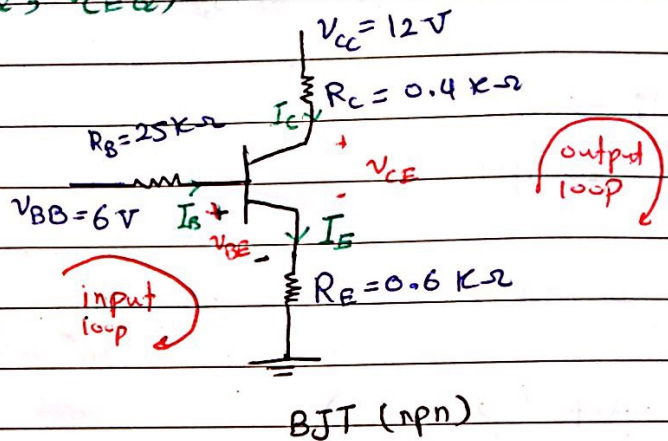 V_CC = 12 V
R_C = 0.4 KΩ
I_C
R_B = 25 KΩ
+
V_CE
-
output
loop
V_BB = 6 V
I_B
+
V_BE
-
I_E
R_E = 0.6 KΩ
input
loop
BJT (npn)